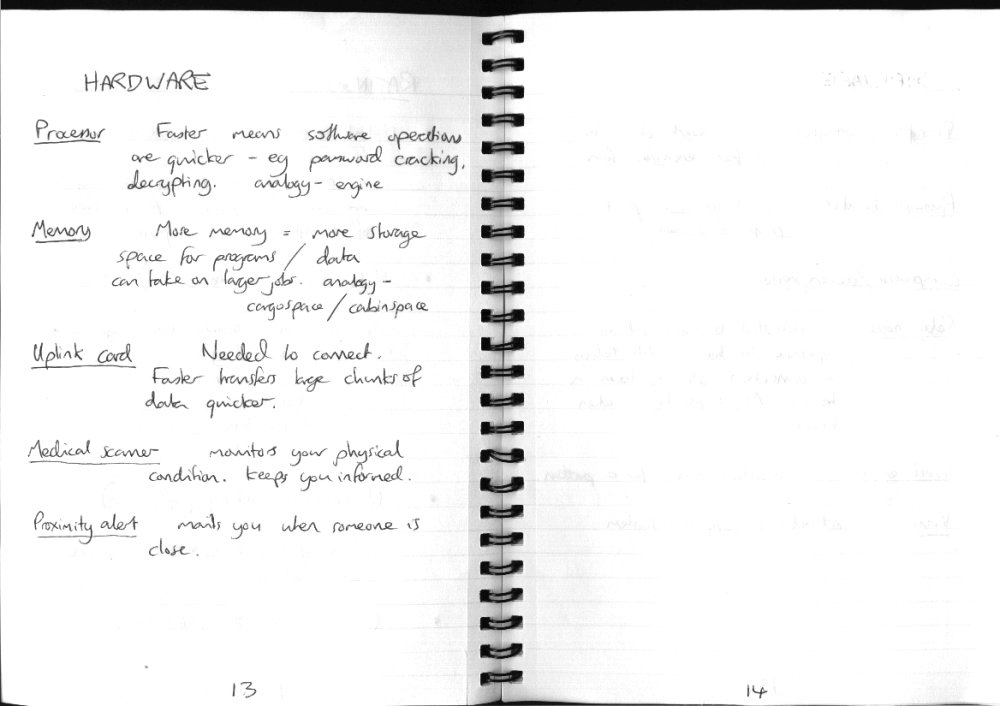 HARDWARE
Processor Faster means software operations
are quicker - eg password cracking,
decrypting. analogy - engine
Memory More memory = more storage
space for programs / data
can take on larger jobs. analogy -
cargospace / cabinspace
Uplink card Needed to connect.
Faster transfers large chunks of
data quicker.
Medical scanner monitors your physical
condition. Keeps you informed.
Proximity alert mails you when someone is
close.
13
14